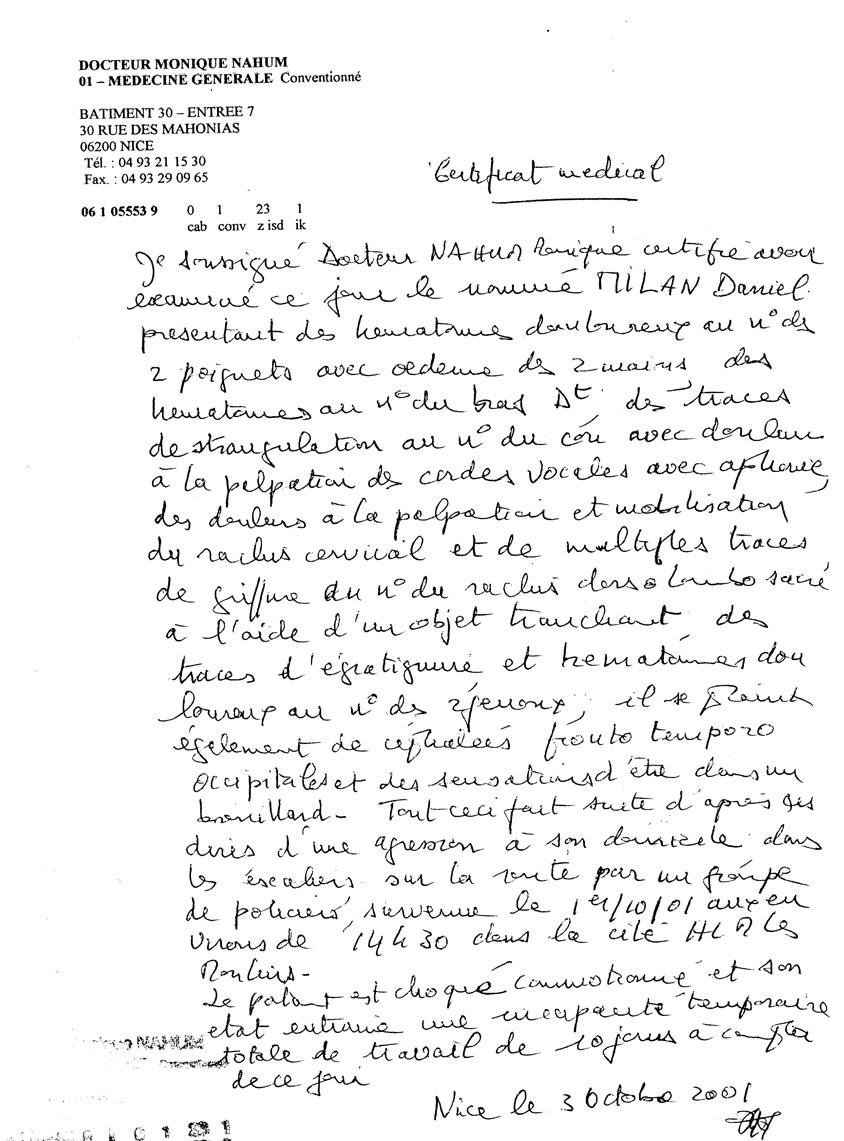 DOCTEUR MONIQUE NAHUM
01 – MEDECINE GENERALE Conventionné
BATIMENT 30 – ENTREE 7
30 RUE DES MAHONIAS
06200 NICE
Tél. : 04 93 21 15 30
Fax. : 04 93 29 09 65
06 1 05553 9 0 1 23 1
cab conv z isd ik
Certificat medical
Je soussigné Docteur NAHUM Monique certifie avoir
examiné ce jour le nommé MILAN Daniel
presentant des hematomes douloureux au n° des
2 poignets avec oedeme des 2 mains, des
hematomes au n° du bras Dt, des traces
de strangulation au n° du cou avec douleur
à la palpation des cordes vocales avec aphonie,
des douleurs à la palpation et mobilisation
du rachis cervical et de multiples traces
de griffure au n° du rachis dorso lombo sacré
à l'aide d'un objet tranchant des
traces d'égratignure et hematomes dou
loureux au n° des 2 genoux, il se plaint
également de céphalées fronto temporo
occipitales et des sensations d'être dans un
brouillard - Tout ceci fait suite d'après ses
dires d'une agression à son domicile dans
les escaliers sur la route par un groupe
de policiers, survenue le 1er/10/01 aux en
virons de 14h30 dans la cité HLM les
Moulins -
Le patient est choqué commotionné et son
etat entraine une incapacité temporaire
totale de travail de 10 jours à compter
de ce jour
NAHUM
Nice le 3 Octobre 2001